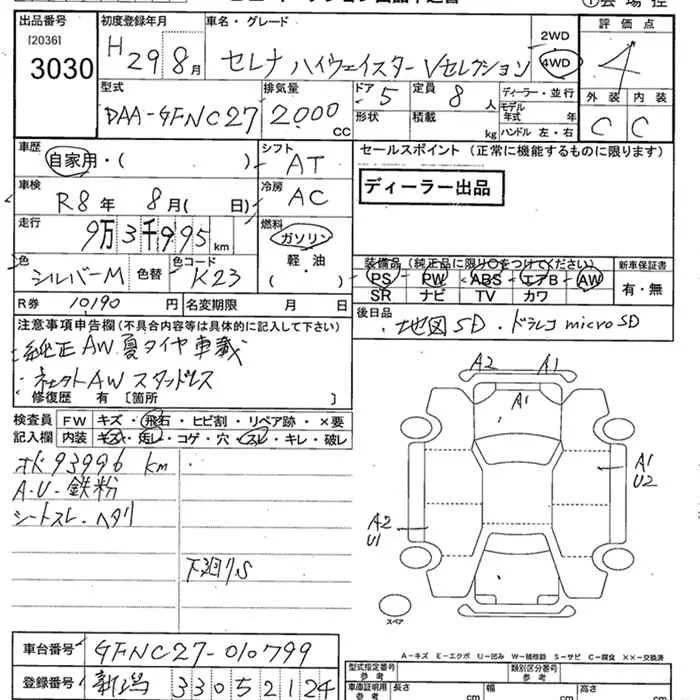 出品番号
[2036]
3030
初度登録年月
H 29 8月
車名・グレード
セレナ ハイウェイスター Vセレクション
2WD
4WD
評価点
4
外装 内装
C C
型式
DAA-GFNC27
排気量
2000 CC
ドア 5
形状
定員 8 人
積載 kg
ディーラー・並行
モデル年式 年
ハンドル 左・右
車歴
自家用・( )
シフト
AT
セールスポイント (正常に機能するものに限ります)
ディーラー出品
車検
R8年 8月( 日)
冷房
AC
走行
9万3千995km
燃料
ガソリン
軽・油
( )
色
シルバーM
色替
色コード
K23
装備品(純正品に限り○をつけてください)
PS PW ABS エアB AW
SR ナビ TV カワ
新車保証書
有・無
R券 10190 円
名変期限 月 日
後日品
地図SD・ドラレコmicroSD
注意事項申告欄(不具合内容等は具体的に記入して下さい)
純正AW夏タイヤ車載
・ネクストAWスタッドレス
修復歴 有 [箇所 ]
検査員記入欄
FW キズ・飛石・ヒビ割・リペア跡・×要
内装 キズ・汚レ・コゲ・穴・スレ・キレ・破レ
オK93996km
A.U.鉄粉
シートスレ・ヘタリ
下廻りS
A2 A1
A1
A1
U2
A2
U1
スペア
A-キズ E-エクボ U-凹み W-補修跡 S-サビ C-腐食 ××-交換済
車台番号
GFNC27-010799
登録番号
新潟 330 52124
型式指定番号
参考
類別区分番号
参考
車庫証明用
参考
長さ cm
幅 cm
高さ cm